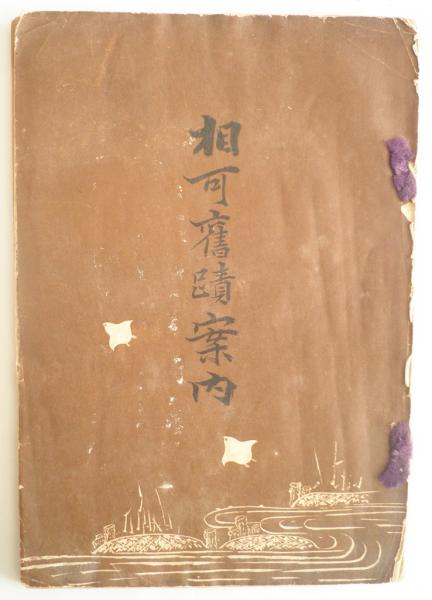 相可舊蹟案内